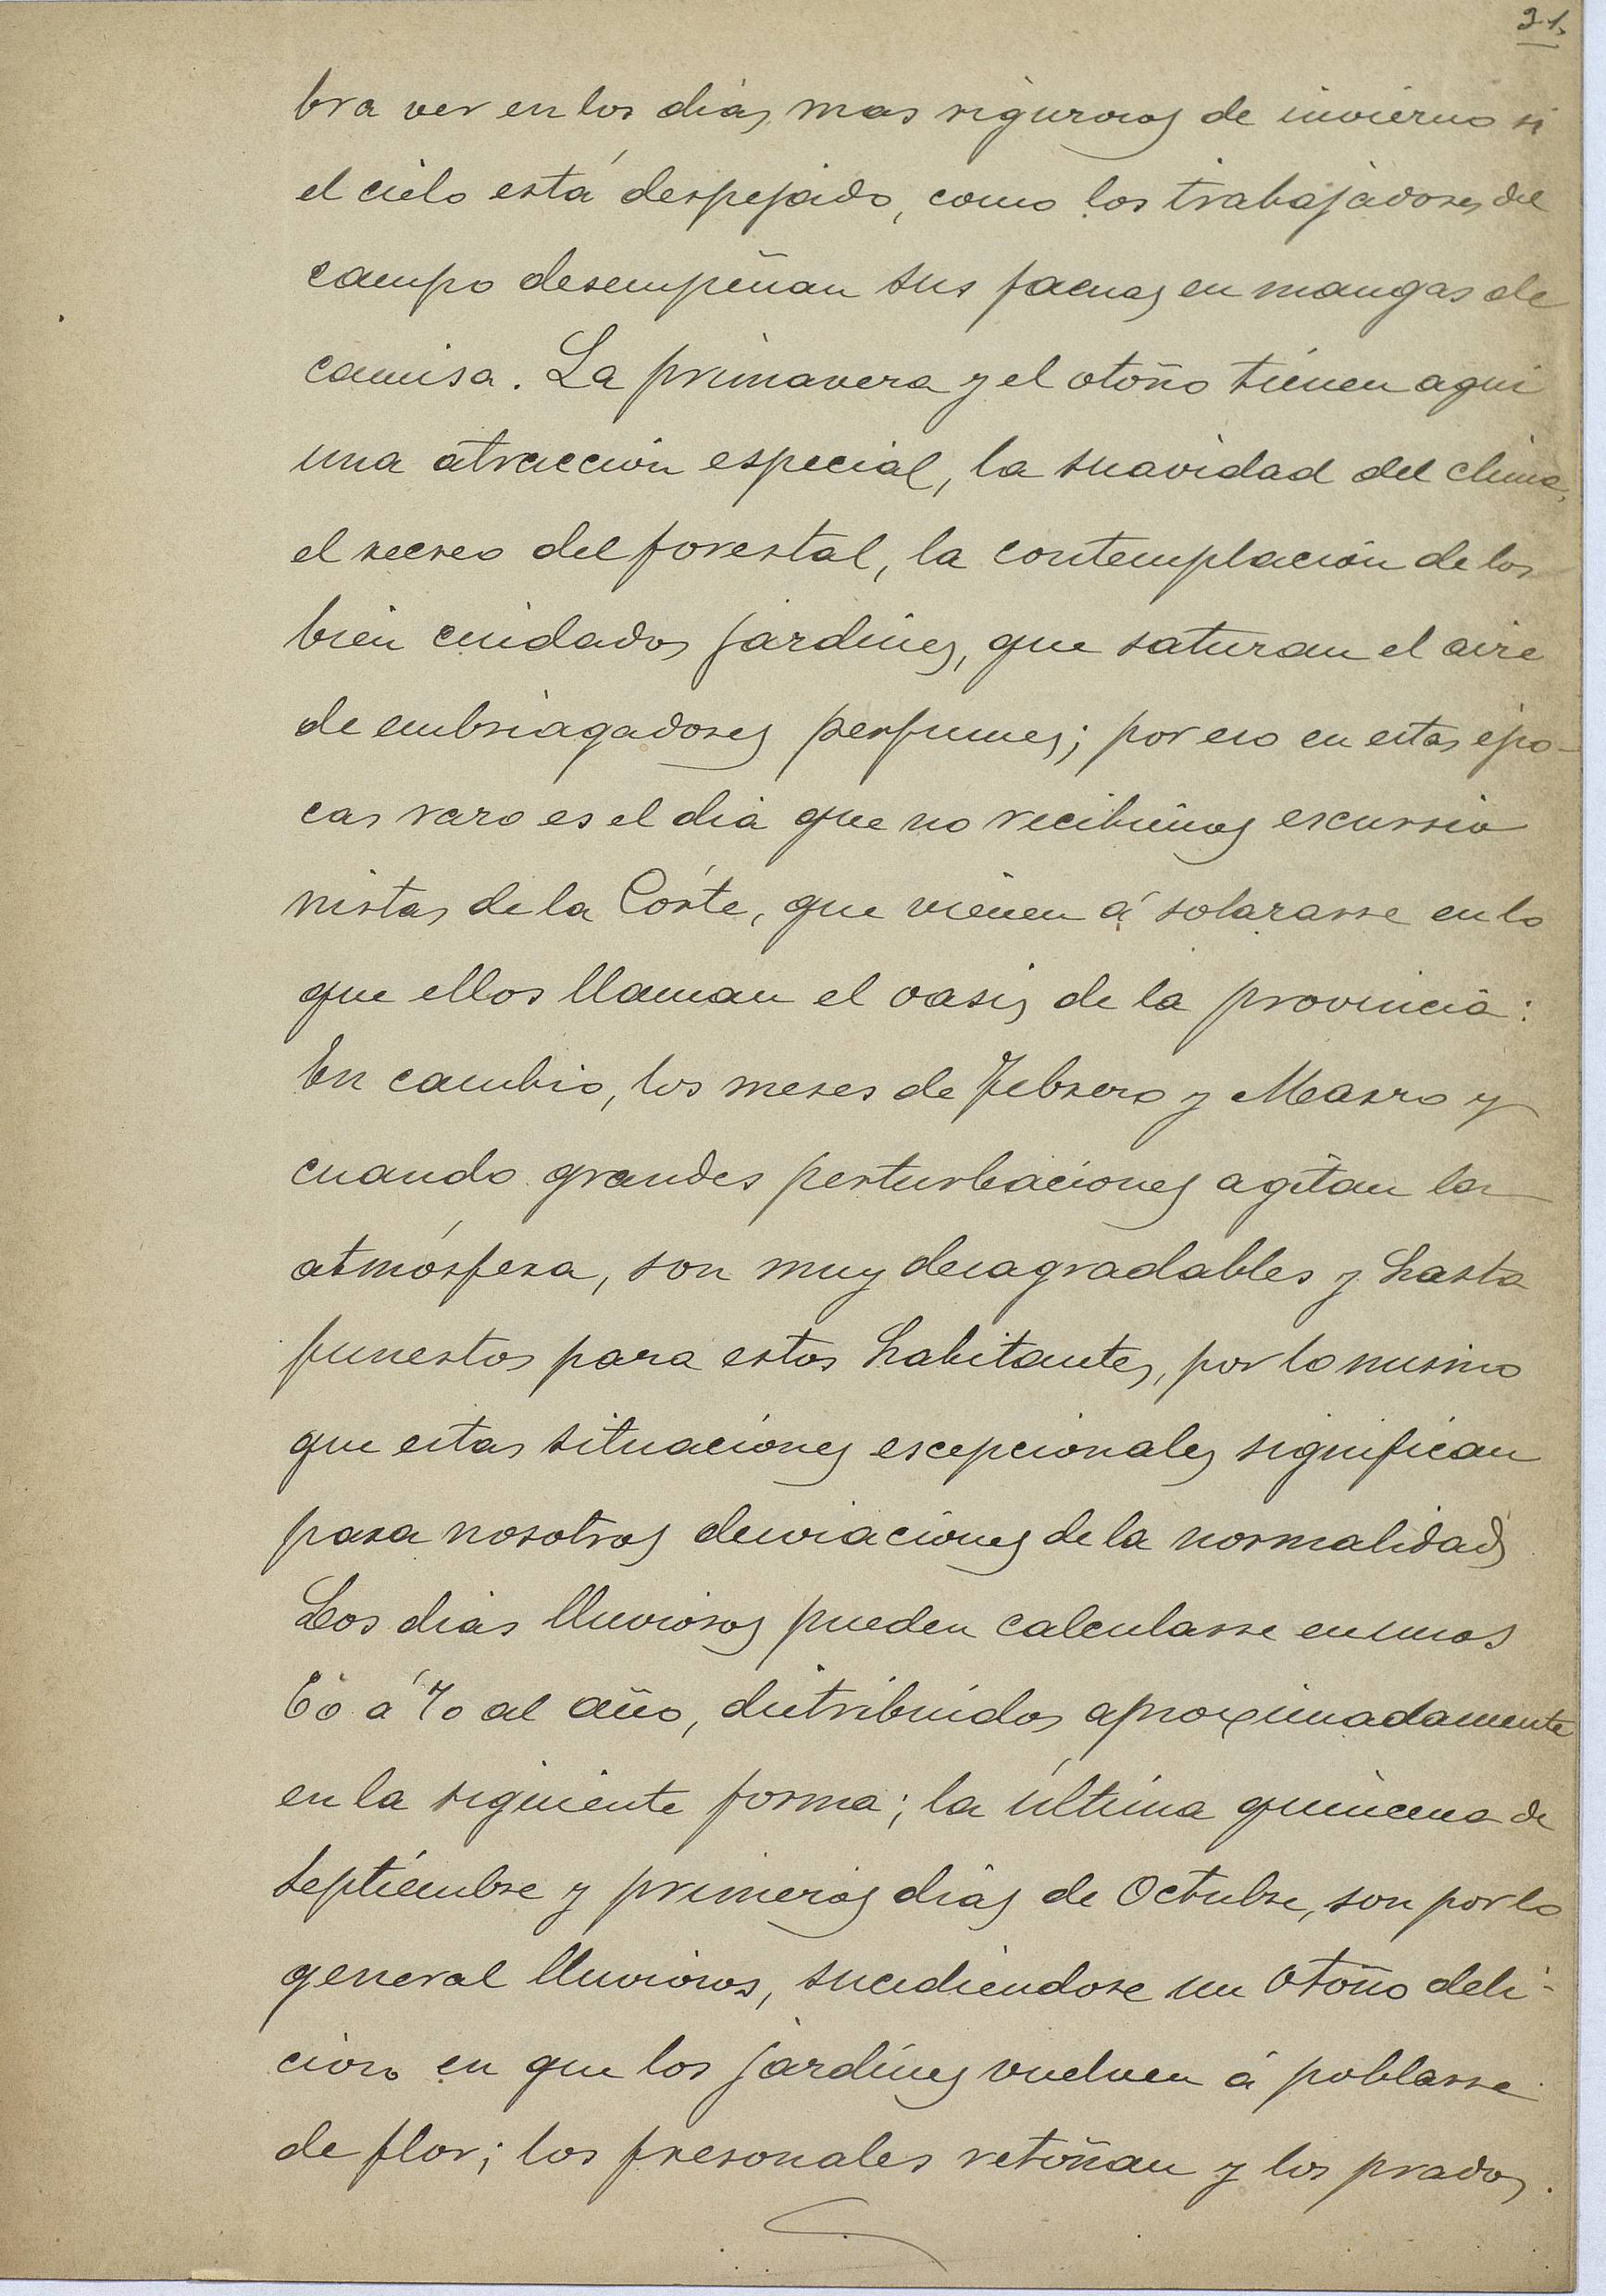 31,
bra ver en los dias mas rigurosos de invierno si
el cielo está despejado, como los trabajadores del
campo desempeñan sus faenas en mangas de
camisa. La primavera y el otoño tienen aqui
una atraccion especial, la suavidad del clima,
el recreo del forestal, la contemplación de los
bien cuidados jardines, que saturan el aire
de embriagadores perfumes; por eso en estas épo-
cas raro es el dia que no recibimos escursio
nistas de la Córte, que vienen á solazarse en lo
que ellos llaman el oasis de la provincia:
En cambio, los meses de Febrero y Marzo y
cuando grandes perturbaciones agitan la
atmósfera, son muy desagradables y hasta
funestos para estos habitantes, por lo mismo
que estas situaciones escepcionales significan
para nosotros desviaciones de la normalidad
Los dias lluviosos pueden calcularse en unos
60 á 70 al año, distribuidos aproximadamente
en la siguiente forma; la última quincena de
Septiembre y primeros dias de Octubre, son por lo
general lluviosos, sucediendose un Otoño deli-
cioso en que los jardines vuelven á poblarse
de flor; los fresonales retoñan y los prados.